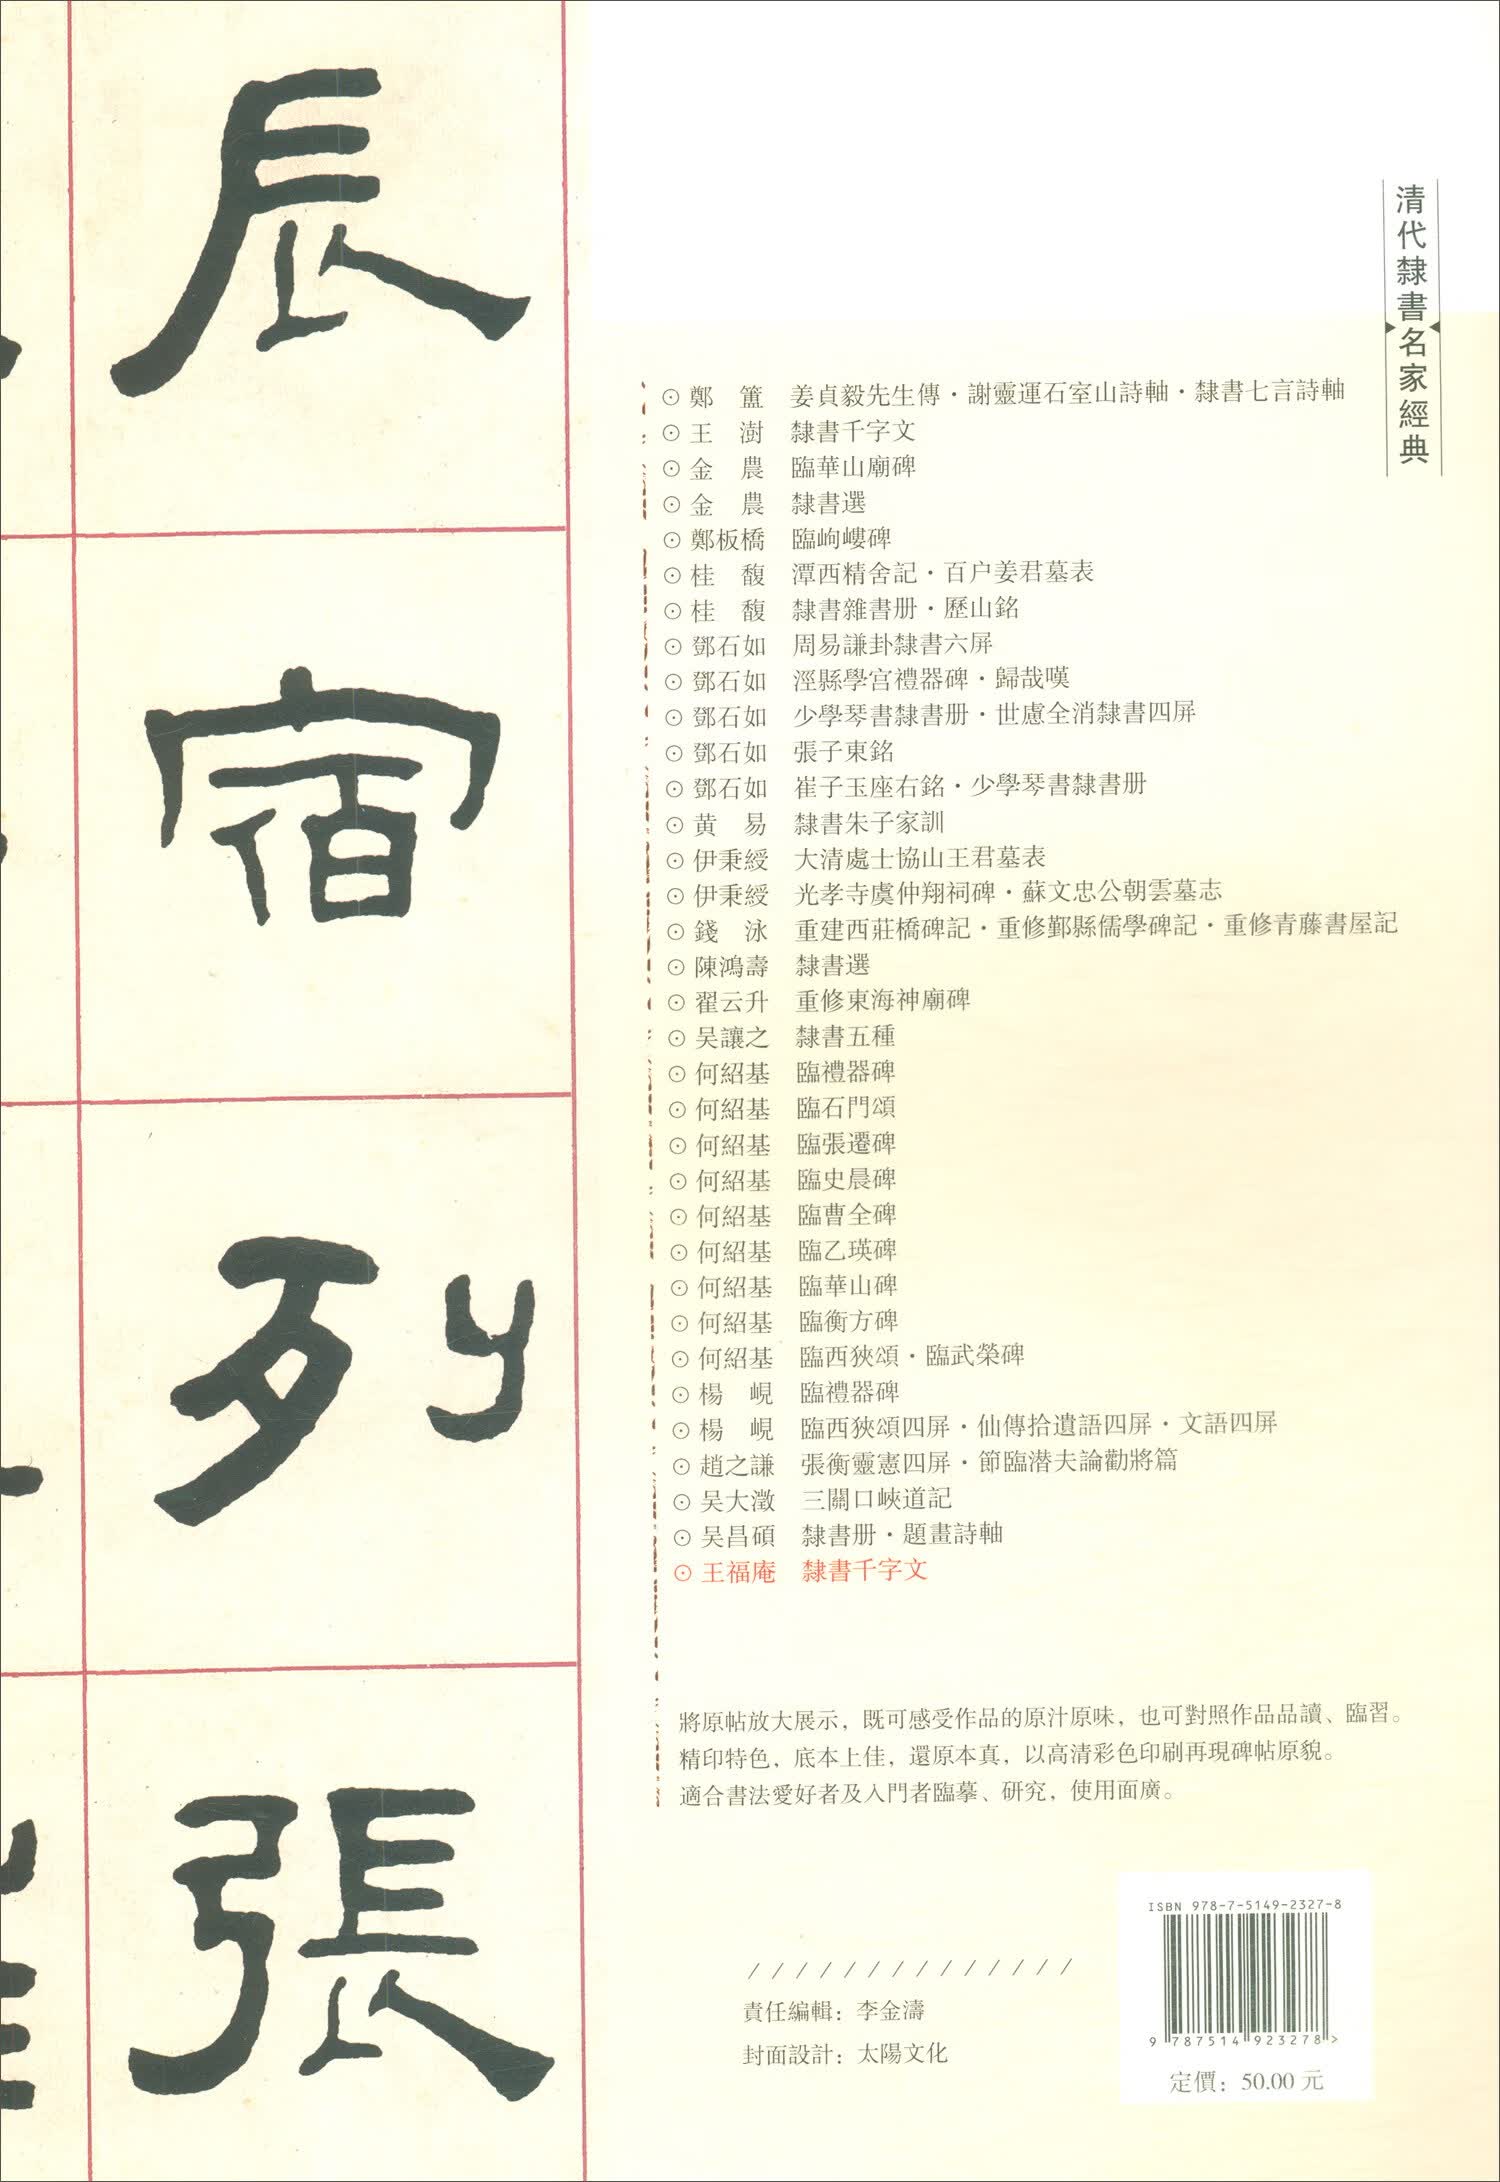 辰
宿
列
張
清代隸書名家經典
⊙鄭　簠　姜貞毅先生傳·謝靈運石室山詩軸·隸書七言詩軸
⊙王　澍　隸書千字文
⊙金　農　臨華山廟碑
⊙金　農　隸書選
⊙鄭板橋　臨岣嶁碑
⊙桂　馥　潭西精舍記·百户姜君墓表
⊙桂　馥　隸書雜書册·歷山銘
⊙鄧石如　周易謙卦隸書六屏
⊙鄧石如　涇縣學宫禮器碑·歸哉嘆
⊙鄧石如　少學琴書隸書册·世慮全消隸書四屏
⊙鄧石如　張子東銘
⊙鄧石如　崔子玉座右銘·少學琴書隸書册
⊙黄　易　隸書朱子家訓
⊙伊秉綬　大清處士協山王君墓表
⊙伊秉綬　光孝寺虞仲翔祠碑·蘇文忠公朝雲墓志
⊙錢　泳　重建西莊橋碑記·重修鄞縣儒學碑記·重修青藤書屋記
⊙陳鴻壽　隸書選
⊙翟云升　重修東海神廟碑
⊙吴讓之　隸書五種
⊙何紹基　臨禮器碑
⊙何紹基　臨石門頌
⊙何紹基　臨張遷碑
⊙何紹基　臨史晨碑
⊙何紹基　臨曹全碑
⊙何紹基　臨乙瑛碑
⊙何紹基　臨華山碑
⊙何紹基　臨衡方碑
⊙何紹基　臨西狹頌·臨武榮碑
⊙楊　峴　臨禮器碑
⊙楊　峴　臨西狹頌四屏·仙傳拾遺語四屏·文語四屏
⊙趙之謙　張衡靈憲四屏·節臨潜夫論勸將篇
⊙吴大澂　三關口峽道記
⊙吴昌碩　隸書册·題畫詩軸
⊙王福庵　隸書千字文
將原帖放大展示，既可感受作品的原汁原味，也可對照作品品讀、臨習。
精印特色，底本上佳，還原本真，以高清彩色印刷再現碑帖原貌。
適合書法愛好者及入門者臨摹、研究，使用面廣。
//////////////
責任編輯：李金濤
封面設計：太陽文化
ISBN 978-7-5149-2327-8
9 787514 923278 >
定價：50.00 元